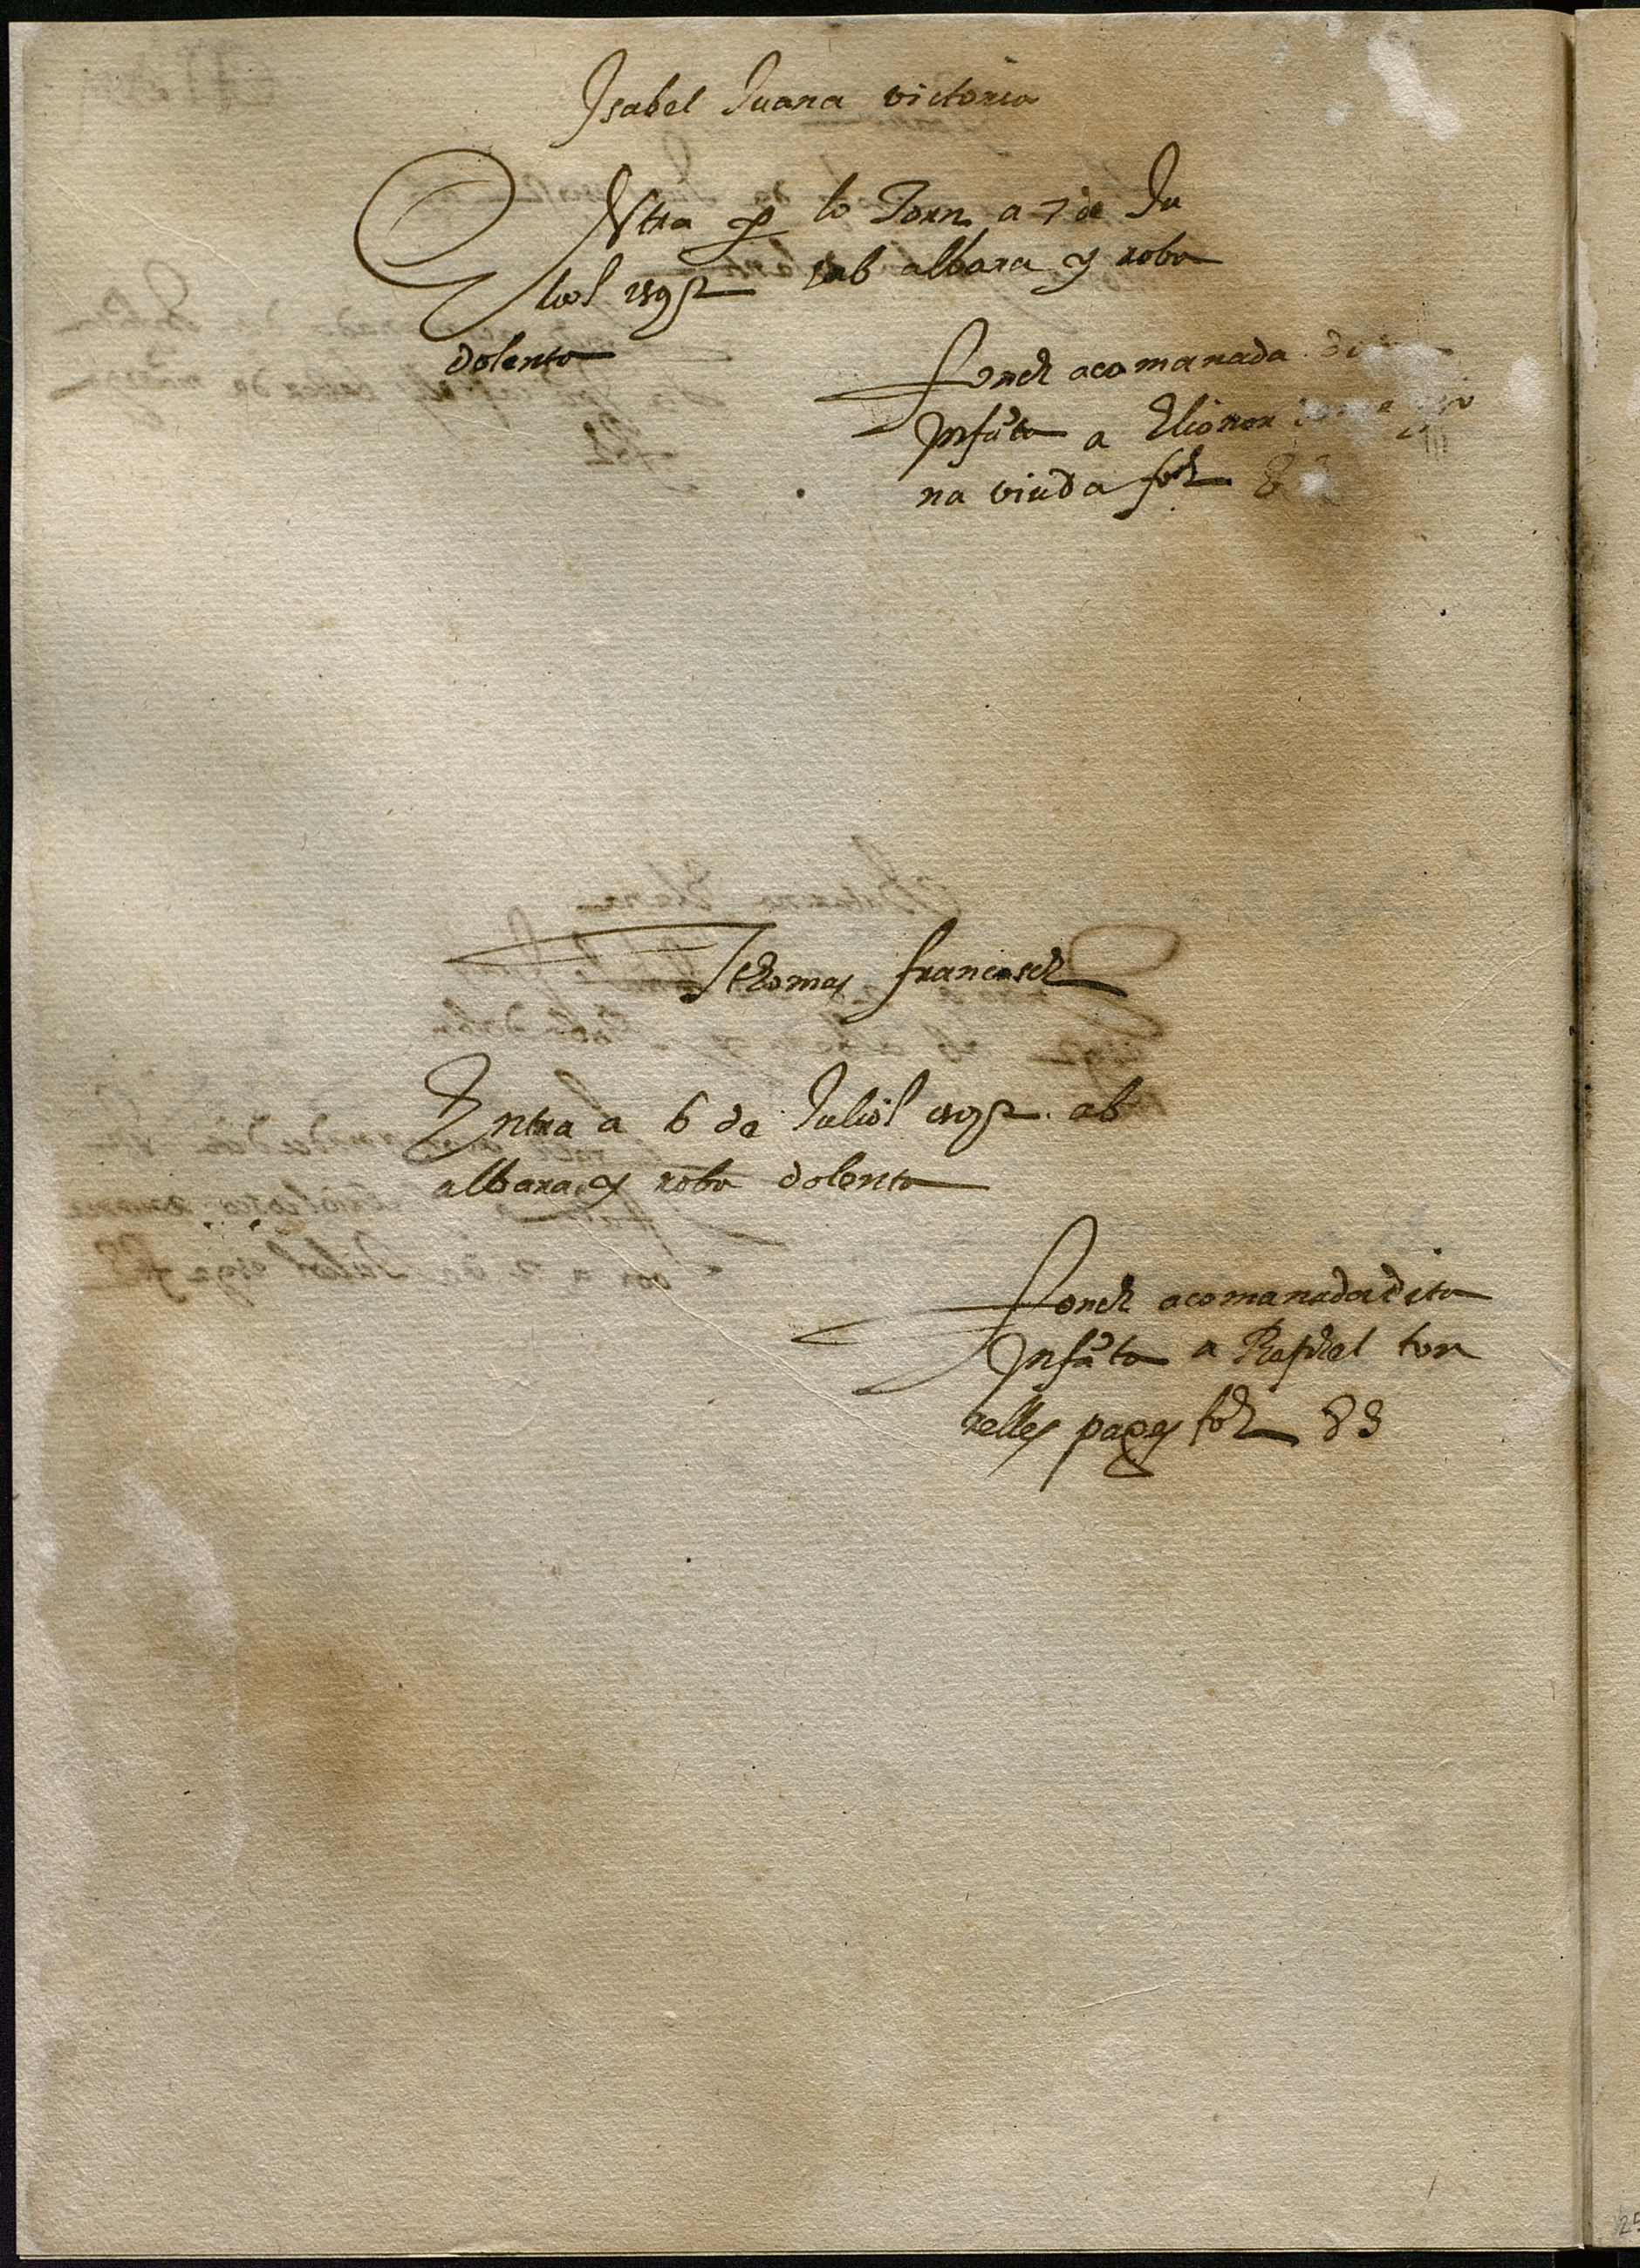 Isabel Juana victoria
ENtra p lo Torn a 7 de Ju
liol 1592 ab albara y roba
dolenta
fonch acomanada
Infāta a Elionor
na viuda fol. 8
Thomas francisch
Entra a 6 de Juliol 1592. ab
albara y roba dolenta
fonch acomanada dita
Infāta a Raphel tor
relles pages fol. 83